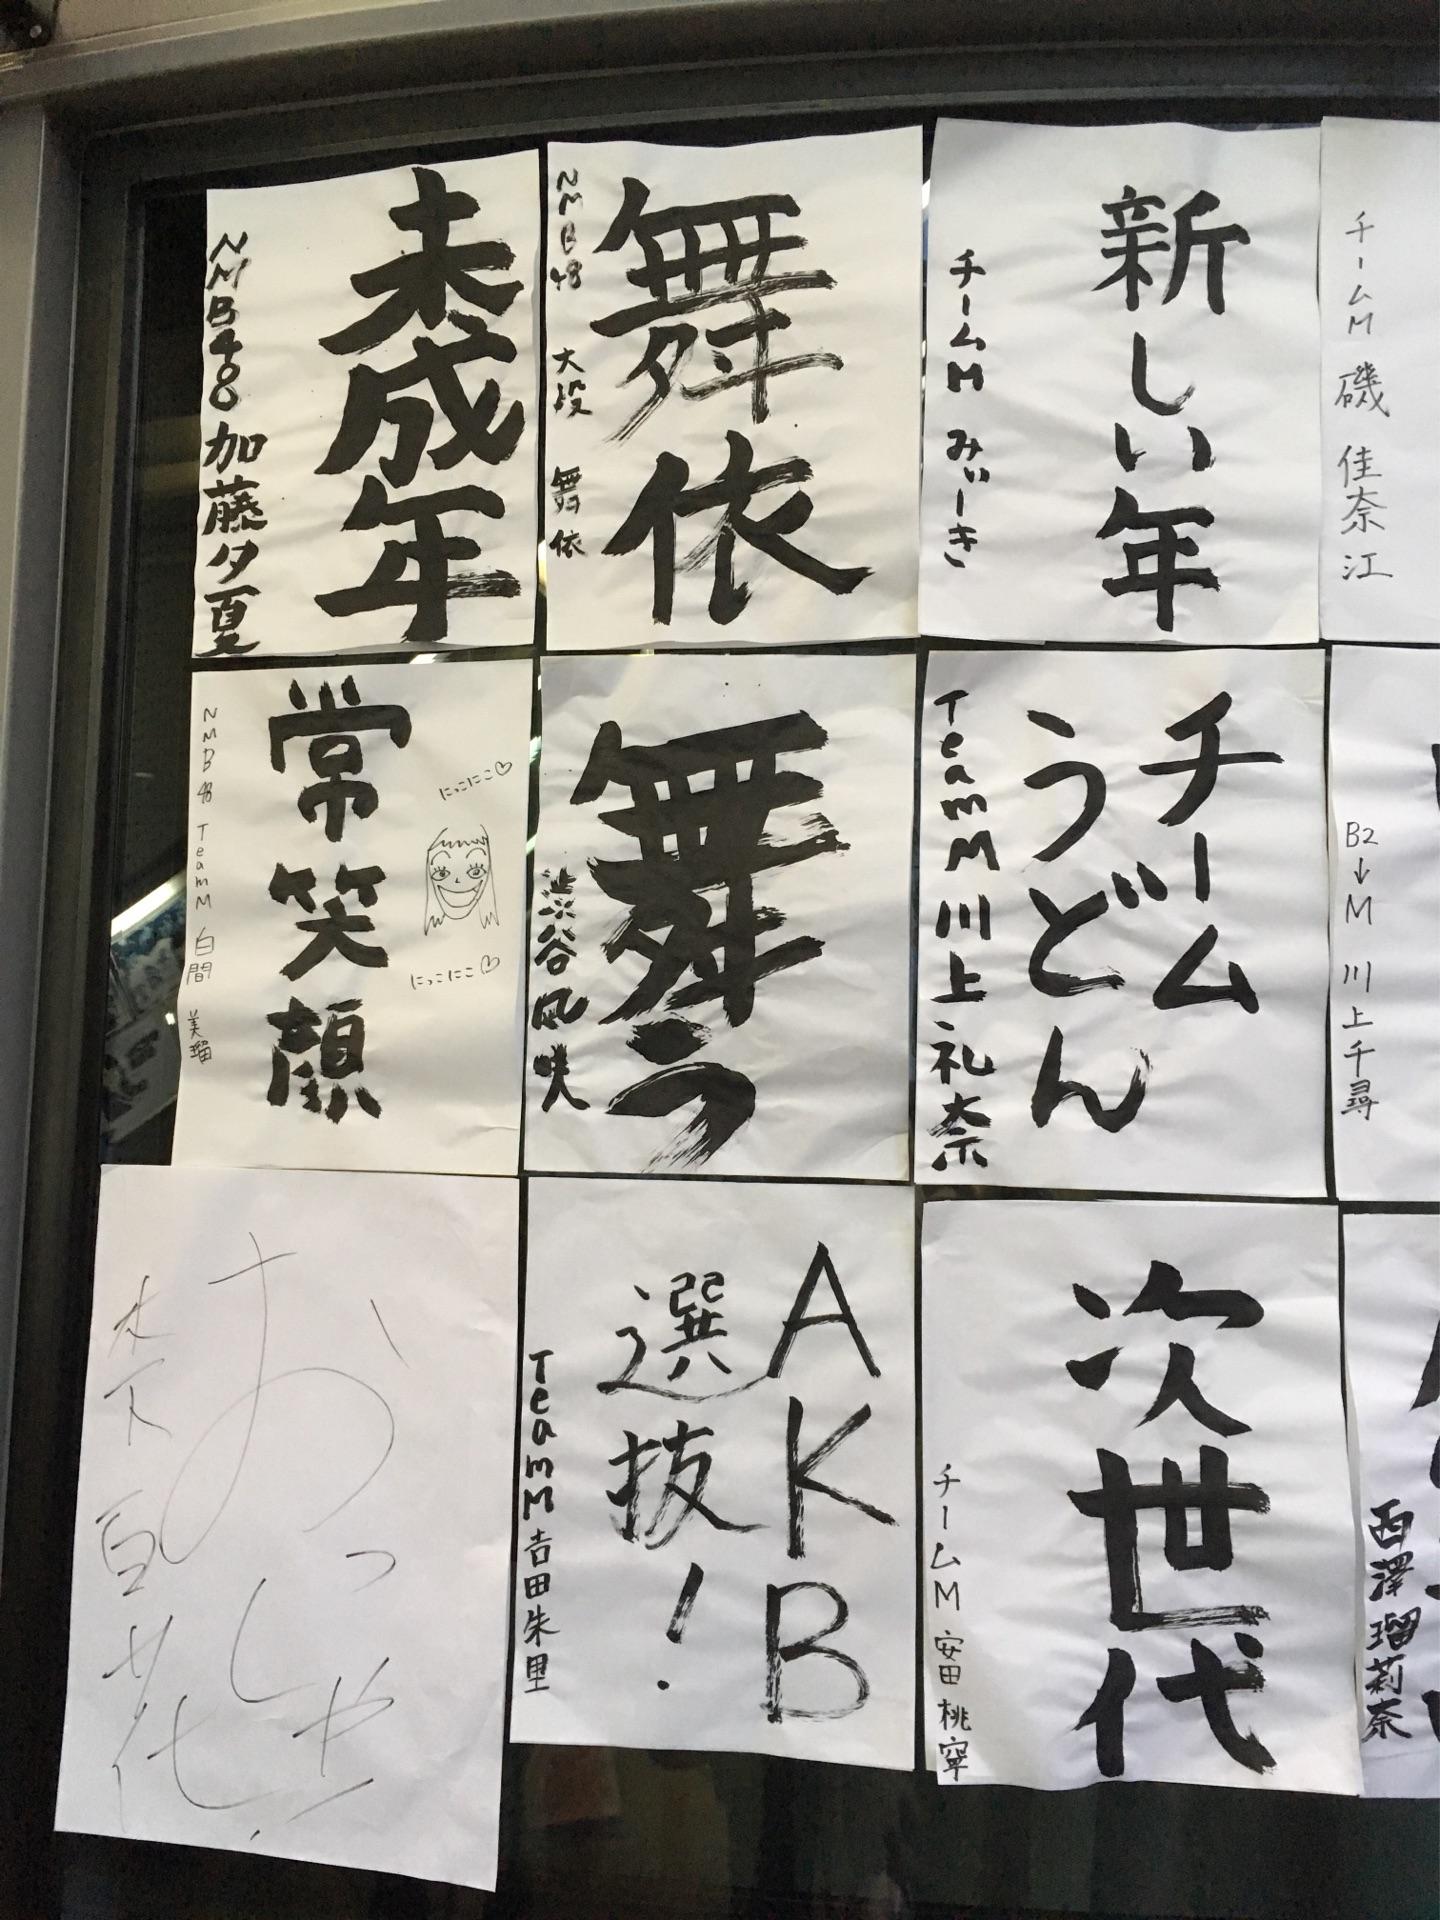 未成年
NMB48 加藤夕夏
舞依
NMB48 大段 舞依
新しい年
チームM みぃーき
チームM 磯 佳奈江
常笑顔
にっこにこ♡
にっこにこ♡
NMB48 TeamM 白間 美瑠
舞う
渋谷凪咲
チーム
うどん
TeamM 川上礼奈
B2→M 川上千尋
おっしゃ
木下百花
AKB
選抜!
TeamM 吉田朱里
次世代
チームM 安田 桃寧
西澤瑠莉奈